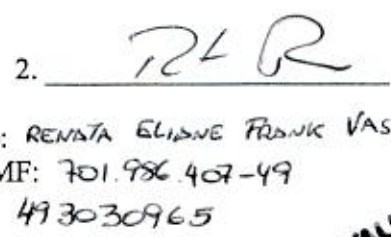 2.
: RENATA ELIANE FRANK VAS
MF: 701.986.407-49
493030965